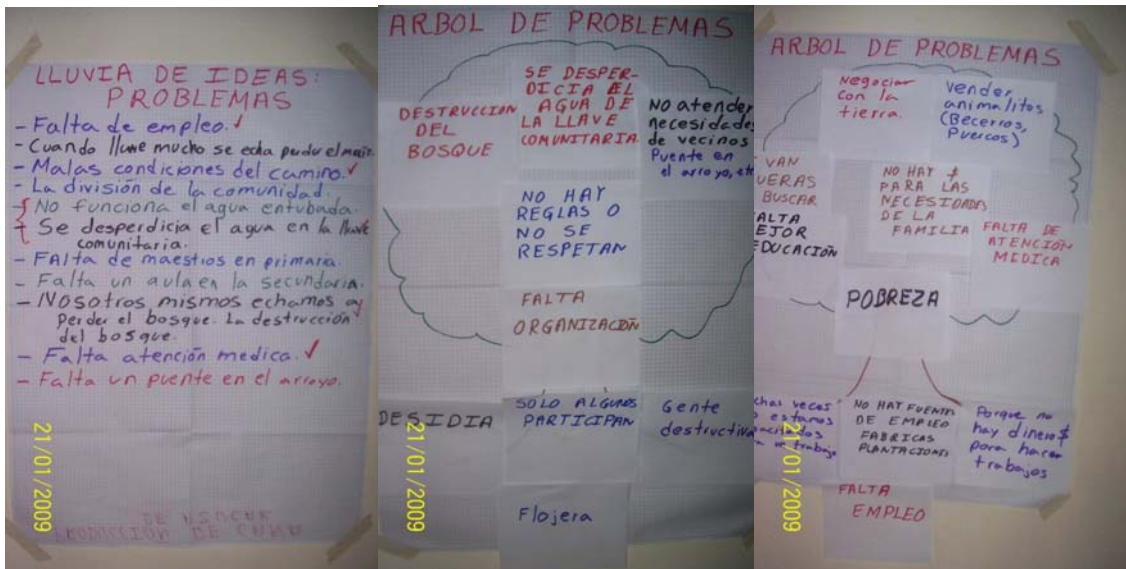 LLUVIA DE IDEAS:
PROBLEMAS
- Falta de empleo. ✓
- Cuando llueve mucho se echa perder el maíz.
- Malas condiciones del camino. ✓
- La división de la comunidad.
- No funciona el agua entubada.
- Se desperdicia el agua en la llave
comunitaria.
- FAlta de maestros en primaria.
- Falta un aula en la secundaria.
- Nosotros mismos echamos a
perder el bosque. La destrucción
del bosque.
- Falta atención medica. ✓
- Falta un puente en el arroyo.
21/01/2009
ARBOL DE PROBLEMAS
DESTRUCCION
DEL
BOSQUE
SE DESPER-
DICIA EL
AGUA DE
LA LLAVE
COMUNITARIA.
NO atender
necesidades
de vecinos
Puente en
el arroyo, etc
NO HAY
REGLAS O
NO SE
RESPETAN
FALTA
ORGANIZACIÓN
DESIDIA
SOLO ALGUNOS
PARTICIPAN
Gente
destructiva
Flojera
21/01/2009
ARBOL DE PROBLEMAS
Negociar
con la
tierra.
Vender
animalitos
(Becerros,
Puercos)
VAN
UERAS
BUSCAR
NO HAY $
PARA LAS
NECESIDADES
DE LA
FAMILIA
ALTA
EJOR
EDUCACIÓN
FALTA DE
ATENCIÓN
MEDICA
POBREZA
chas veces
estamos
pacitados
trabajo
NO HAY FUENTES
DE EMPLEO
FABRICAS
PLANTACIONES
Porque no
hay dinero $
para hacer
trabajos
FALTA
EMPLEO
21/01/2009